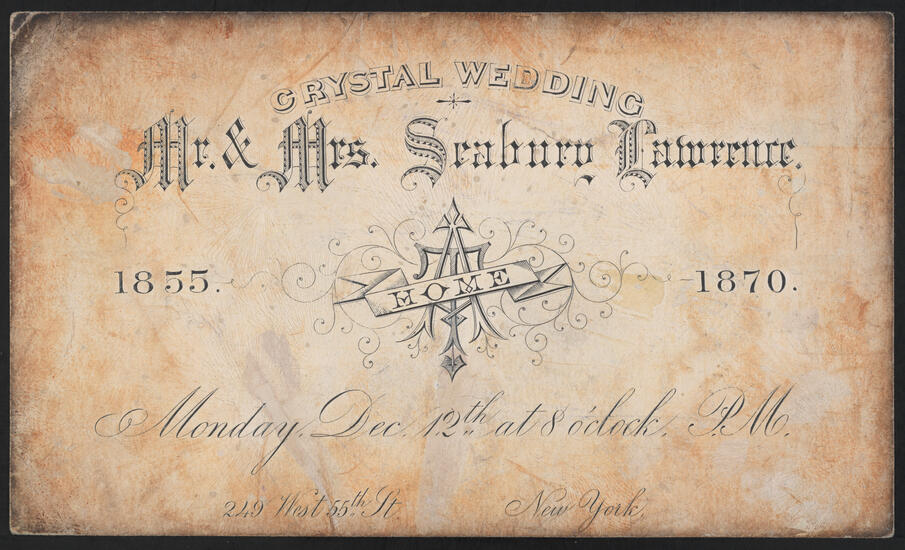 CRYSTAL WEDDING
Mr. & Mrs. Seabury Lawrence.
AT
HOME
1855. 1870.
Monday, Dec. 12th at 8 o'clock, P.M.
249 West 55th St. New York.